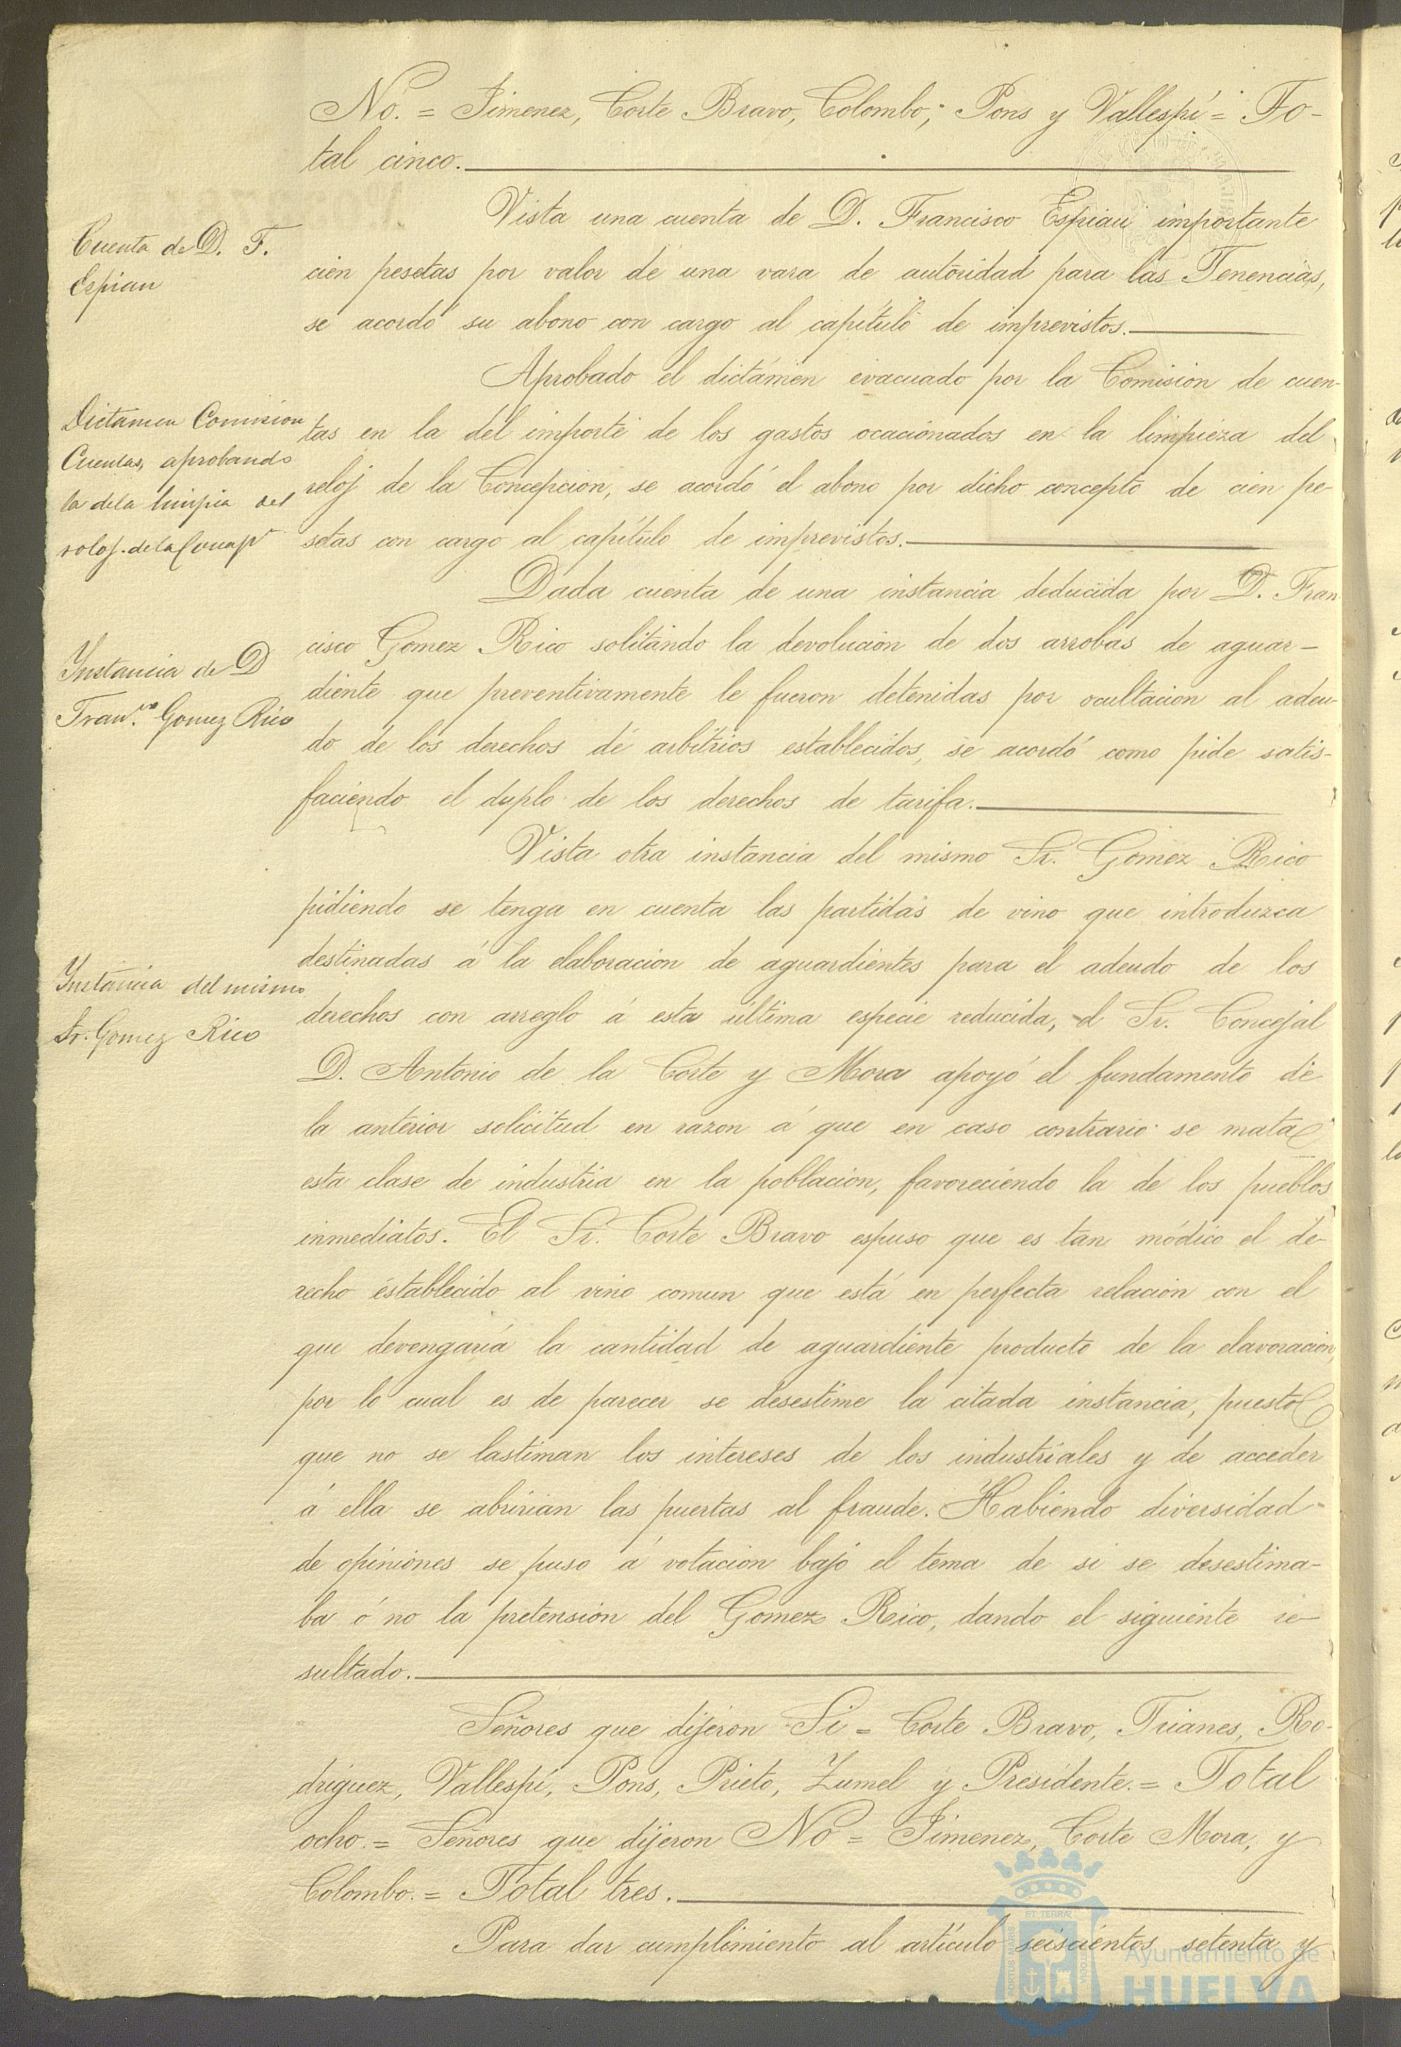 No. = Jimenez, Corte Bravo, Colombo, Pons y Vallespí = To-
tal cinco.
Cuenta de D. F.
Espiau
Vista una cuenta de D. Francisco Espiau importante
cien pesetas por valor de una vara de autoridad para las Tenencias,
se acordó su abono con cargo al capítulo de imprevistos.
Dictamen Comision
Cuentas, aprobando
la de la limpia del
reloj de la Concepn
Aprobado el dictámen evacuado por la Comision de cuen-
tas en la del importe de los gastos ocacionados en la limpieza del
reloj de la Concepcion, se acordó el abono por dicho concepto de cien pe-
setas con cargo al capítulo de imprevistos.
Instancia de D
Fran.co Gomez Rico
Dada cuenta de una instancia deducida por D. Fran
cisco Gomez Rico solitando la devolucion de dos arrobas de aguar-
diente que preventivamente le fueron detenidas por ocultacion al adeu-
do de los derechos de arbitrios establecidos, se acordó como pide satis-
faciendo el duplo de los derechos de tarifa.
Instancia del mismo
Sr. Gomez Rico
Vista otra instancia del mismo Sr. Gomez Rico
pidiendo se tenga en cuenta las partidas de vino que introduzca
destinadas á la elaboracion de aguardientes para el adeudo de los
derechos con arreglo á esta última especie reducida, el Sr. Concejal
D. Antonio de la Corte y Mora apoyó el fundamento de
la anterior solicitud en razon á que en caso contrario se mata
esta clase de industria en la poblacion, favoreciendo la de los pueblos
inmediatos. El Sr. Corte Bravo espuso que es tan módico el de-
recho establecido al vino comun que está en perfecta relacion con el
que devengaría la cantidad de aguardiente producto de la elavoracion,
por lo cual es de parecer se desestime la citada instancia, puesto
que no se lastiman los intereses de los industriales y de acceder
á ella se abririan las puertas al fraude. Habiendo diversidad
de opiniones se puso á votacion bajo el tema de si se desestima-
ba ó no la pretension del Gomez Rico, dando el siguiente re-
sultado.
Señores que dijeron Si = Corte Bravo, Trianes, Ro-
driguez, Vallespí, Pons, Prieto, Zumel y Presidente. = Total
ocho. = Señores que dijeron No = Jimenez, Corte Mora, y
Colombo. = Total tres.
Para dar cumplimiento al artículo seiscientos setenta y
Ayuntamiento de
HUELVA